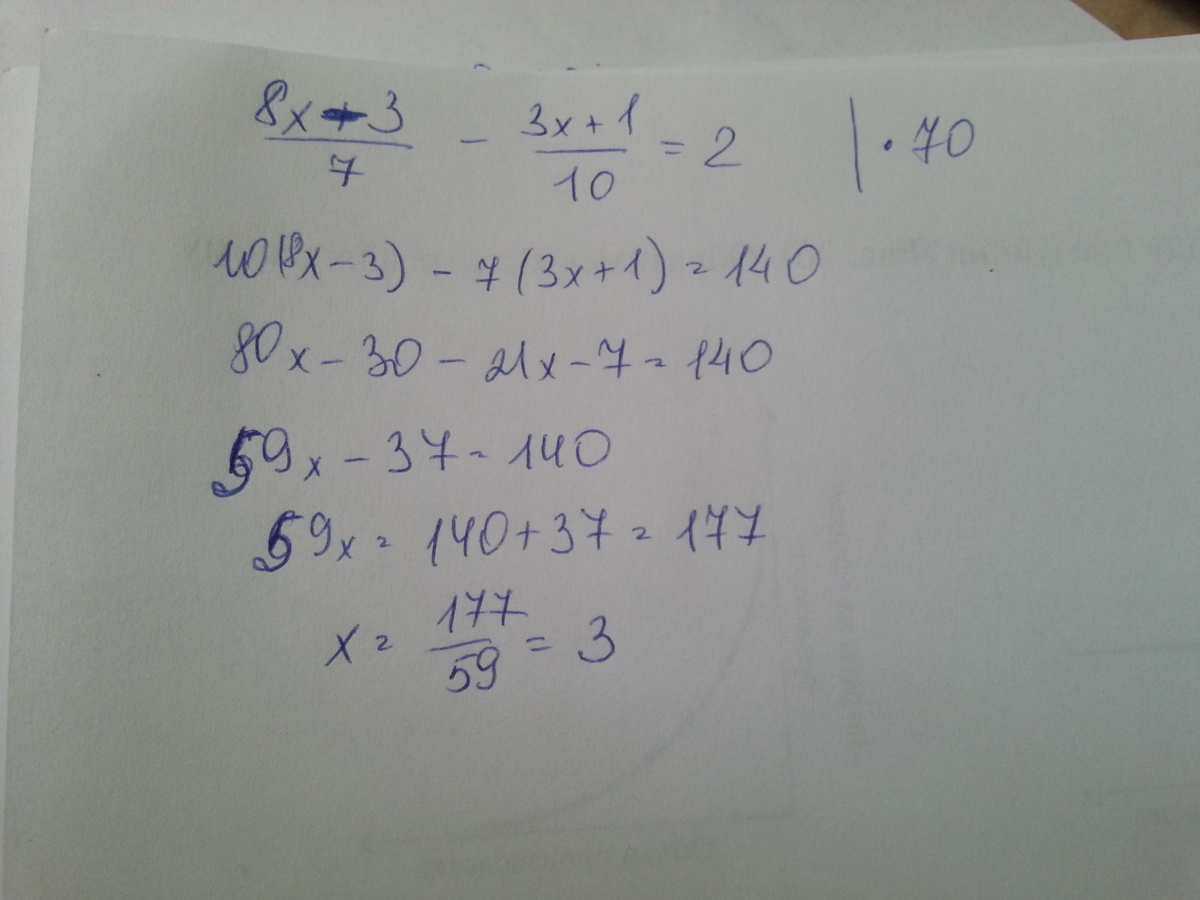 (8x-3)/7 - (3x+1)/10 = 2 | · 70
10(8x-3) - 7(3x+1) = 140
80x - 30 - 21x - 7 = 140
59x - 37 = 140
59x = 140 + 37 = 177
x = 177/59 = 3